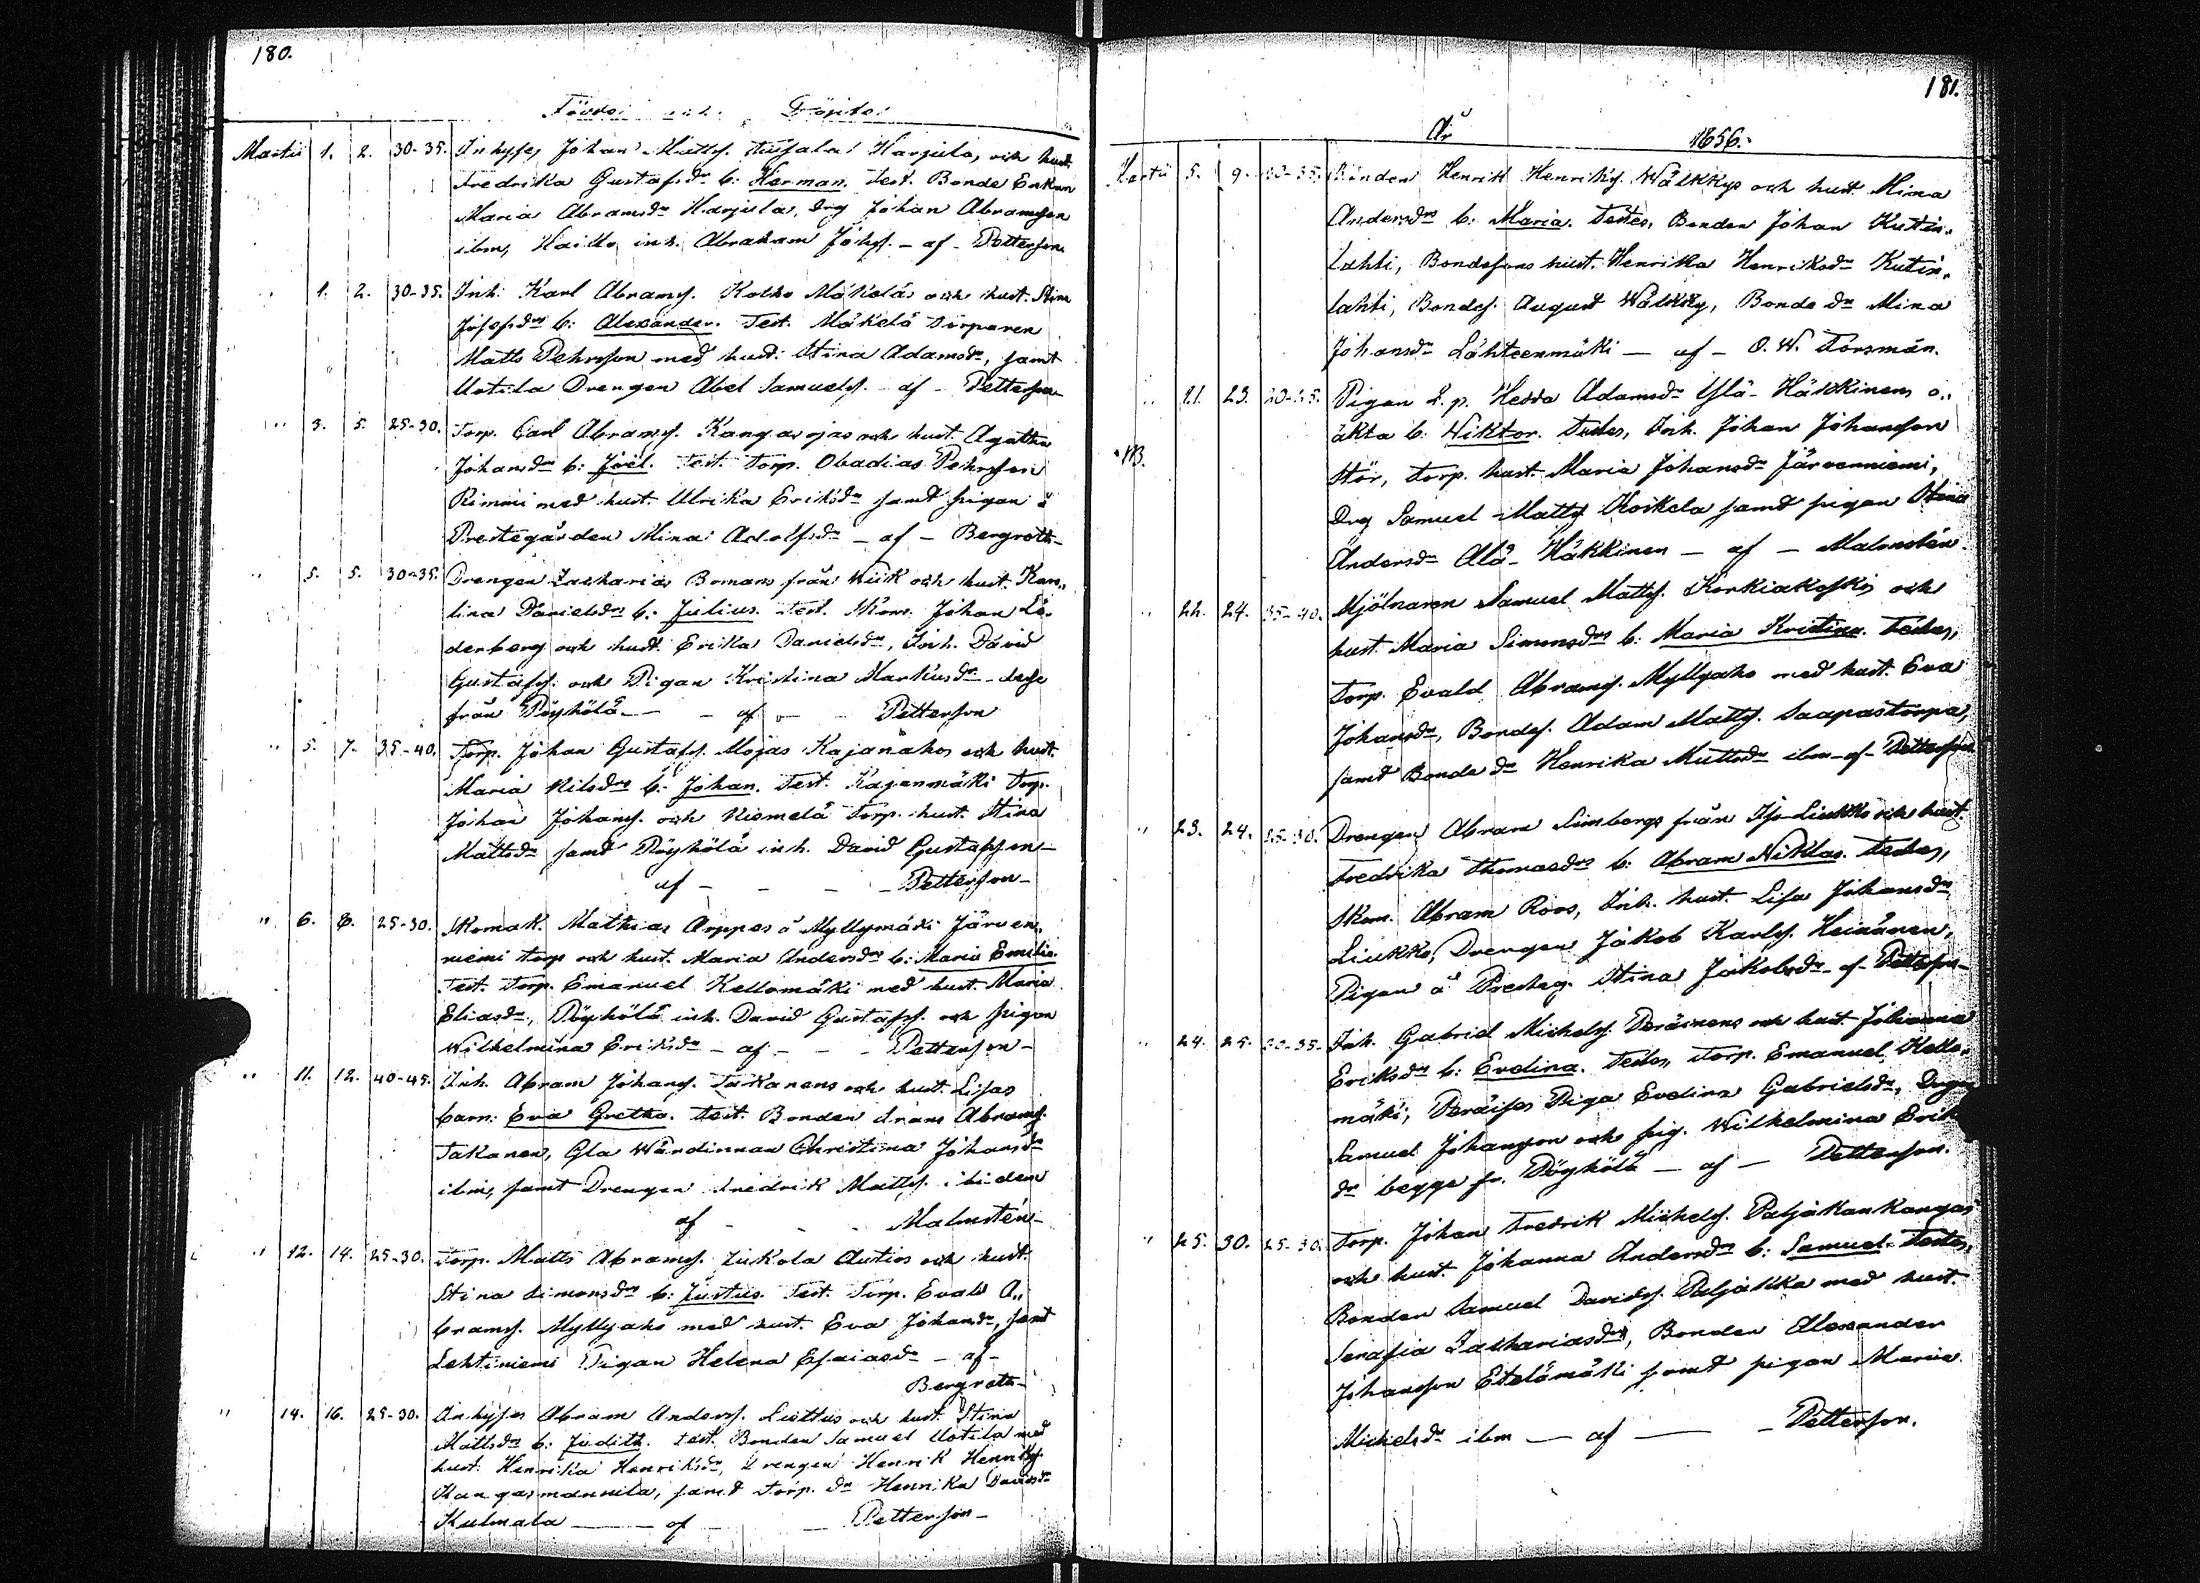 180.
Födde och Döpte
Martii 1. 2. 30-35. Inhyses Johan Matts. Harjula, och hust.
Fredrika Gustafsdr b: Herman. Test. Bonde Enkan
Maria Abramsdr Harjula, Drg Johan Abramsson
ibm, inh. Abraham Johs. - af - Petterson
" 1. 2. 30-35. Inh. Karl Abrams. Kotko Mäkeläs och hust. Stina
Josefsdrs b: Alexander. Test. Mäkelä Torparen
Matts Pehrsson med hust: Stina Adamsdr, samt
Uotila Drengen Abel Samuels. - af - Petterson
" 3. 5. 25-30. Torp. Carl Abrams. Kangasojas och hust. Agatha
Johansdrs b: Joel. Test. Torp. Obadias Pehrsson
Rimmi med hust. Ulrika Eriksdr samt pigan å
Prestegården Mina Adolfsdr - af - Bergroth -
" 5. 5. 30-35. Drengen Zacharias Bomans från Wiik och hust. Karo,,
lina Danielsdrs b: Julius. Test. Skom. Johan Ce-
derberg och hust. Erika Danielsdr, Inh. David
Gustafss. och Pigan Kristina Markusdr - desse
från Pöyhölä - - af - - Petterson
" 5. 7. 35-40. Torp. Johan Gustafss. Mojas Kajanahos och hust.
Maria Nilsdrs b: Johan. Test. Kajanmäki Torp.
Johan Johans. och Niemelä Torp. hust. Stina
Mattsdr samt Pöyhölä inh. David Gustafsson -
af - - - - Petterson -
" 6. 8. 25-30. Skomak. Mathias Arppes å Myllymäki Järven,,
niemi torp och hust. Maria Andersdrs b: Maria Emilia.
Test. Torp. Emanuel Kellomäki med hust. Maria
Eliasdr, Pöyhölä inh. David Gustafss. och pigan
Wilhelmina Eriksdr - af - - - Petterson -
" 11. 12. 40-45. Inh. Abram Johans. Takanens och hust. Lisas
barn: Eva Gretha. Test. Bonden Frans Abrams.
Takanen, Gla Wärdinnan Christina Johansdr
ibm, samt Drengen Fredrik Matts. ibidem
af - - - Malmstén -
" 12. 14. 25-30. Torp. Matts Abrams. Jukola Autios och hust.
Stina Simonsdrs b: Justus. Test. Torp. Evald A,,
brams. Myllyaho med hust. Eva Johansdr, samt
Lehtiniemi Pigan Helena Esaiasdr - af -
Bergroth -
" 14. 16. 25-30. Inhyses Abram Anderss. Luttus och hust. Stina
Mattsdrs b: Judith. Test. Bonden Samuel Uotila med
hust. Henrika Henriksdr, Drengen Henrik Henriks.
Kangasmannila, samt Torp. dr Henrika Davidsdr
Kulmala - af - Petterson -
181.
År 1856.
Martii 5. 9. 30-35. Bonden Henrik Henriks. Wälkkys och hust. Mina
Andersdrs b: Maria. Testes, Bonden Johan Kutin,,
lahti, Bondesons hust. Henrika Henriksdr Kutin,,
lahti, Bondes. August Wälkky, Bonde dr Mina
Johansdr Lähteenmäki - af - O. W. Forsman.
" 21. 23. 20-25. Pigan L. p. Hedda Adamsdr Ylä-Häkkinens o,,
äkta b: Wiktor. Testes, Inh. Johan Johansson
NB. Stör, Torp. hust. Maria Johansdr Järvenniemi,
Drg Samuel Matts Koskela samt pigan Stina
Andersdr Ala-Häkkinen - af - Malmstén.
" 22. 24. 35-40. Mjölnaren Samuel Matts. Korkiakoskis och
hust. Maria Simonsdrs b: Maria Kristina. Testes,
Torp. Evald Abrams. Myllyaho med hust. Eva
Johansdr, Bondes. Adam Matts. Saapastorpa,
samt Bonde dr Henrika Mattsdr ibm - af - Petterson
" 23. 24. 25-30. Drengen Abram Limbergs från Iso-Liukko och hust.
Fredrika Thomasdrs b: Abram Niklas. Testes,
Skom. Abram Roos, Inh. hust. Lisa Johansdr
Liukko, Drengen Jakob Karls. Heinänen,
Pigan å Presteg. Stina Jakobsdr - af - Petterson -
" 24. 25. 30-35. Inh. Gabriel Michels. Peräinens och hust. Johanna
Eriksdrs b: Evelina. Testes, Torp. Emanuel Kello,,
mäki, Peräises Piga Evelina Gabrielsdr, Drgn
Samuel Johansson och pig. Wilhelmina Eriks
dr begge fr. Pöyhölä - af - Petterson.
" 25. 30. 25-30. Torp. Johan Fredrik Michels. Paljakankangas
och hust. Johanna Andersdrs b: Samuel. Testes,
Bonden Samuel Davids. Paljakka med hust.
Serafia Zachariasdr, Bonden Alexander
Johansson Etelämäki samt pigan Maria
Michelsdr ibm - af - Petterson.